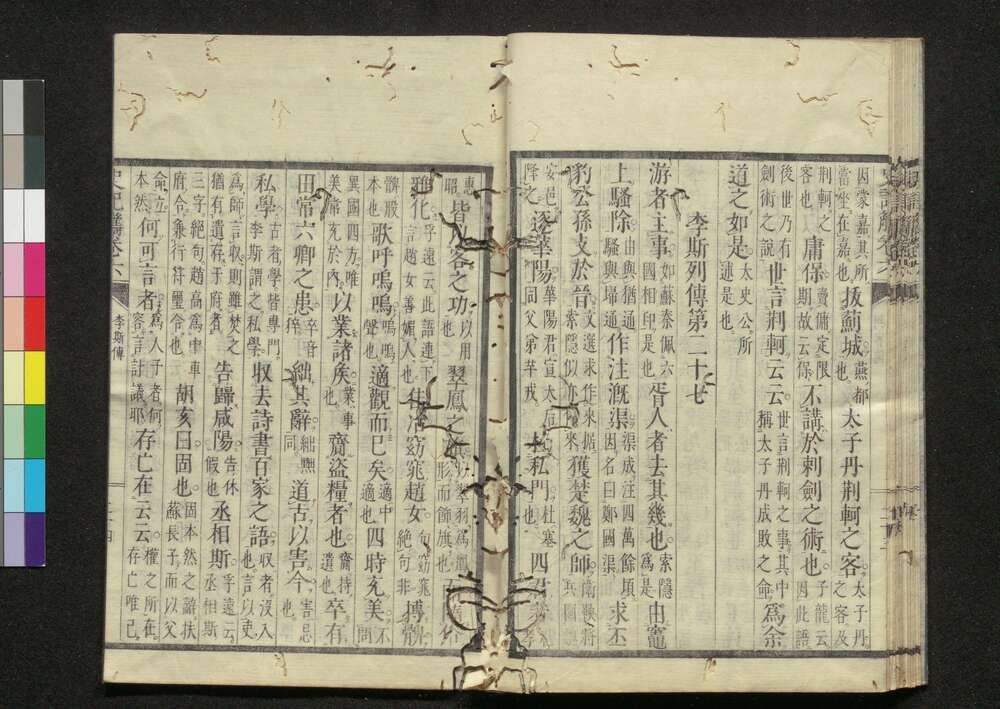 因蒙嘉其所當坐在嘉也拔薊城燕都也太子丹荊軻之客太子丹之客及
荊軻之客也庸保賣傭定限保期故云保不講於刺劍之術也子龍云因此語
後世乃有劍術之說世言荊軻云云世言荊軻之事其中稱太子丹成敗之命為余
道之如是太史公所述是也
李斯列傳第二十七
游者主事如蘇秦佩六國相印是也胥人者去其幾也索隱為是由竈
上騷除由與猶通騷與埽通作注溉渠渠成注四萬餘頃因名曰鄭國渠求丕
豹公孫支於晉文選求作來據索隱似亦作來獲楚魏之師衛鞅將兵圍
安邑降之逐華陽華陽君宣太后同父弟羋戎杜私門杜塞也四君
惠昭皆以客之功以用也翠鳳之旗翠羽為鳳形而飾旗也
雅化孚遠云此語連下言趙女善媚人也佳冶窈窕趙女句窈窕絕句非搏髀
髀股本也歌呼嗚嗚嗚嗚聲也適觀而已矣適中適也四時充美不問
異國四方唯美而充於內以業諸侯業事也齎盜糧者也齎持遺也卒有
田常六卿之患卒音猝絀其辭絀黜同道古以害今害忌也
私學古者學皆專門李斯謂之私學收去詩書百家之語收者沒入也言以吏
為師言收則雖焚之猶有遺存于府者告歸咸陽告休假也丞相斯孚遠云丞相斯
三字絕句趙高為中車府令兼行符璽令也胡亥曰固也固本然之辭扶蘇長子而以父
命立本然何可言者為人子者何容言計議耶存亡在云云權之所在存亡唯己
史記觿卷六
李斯傳